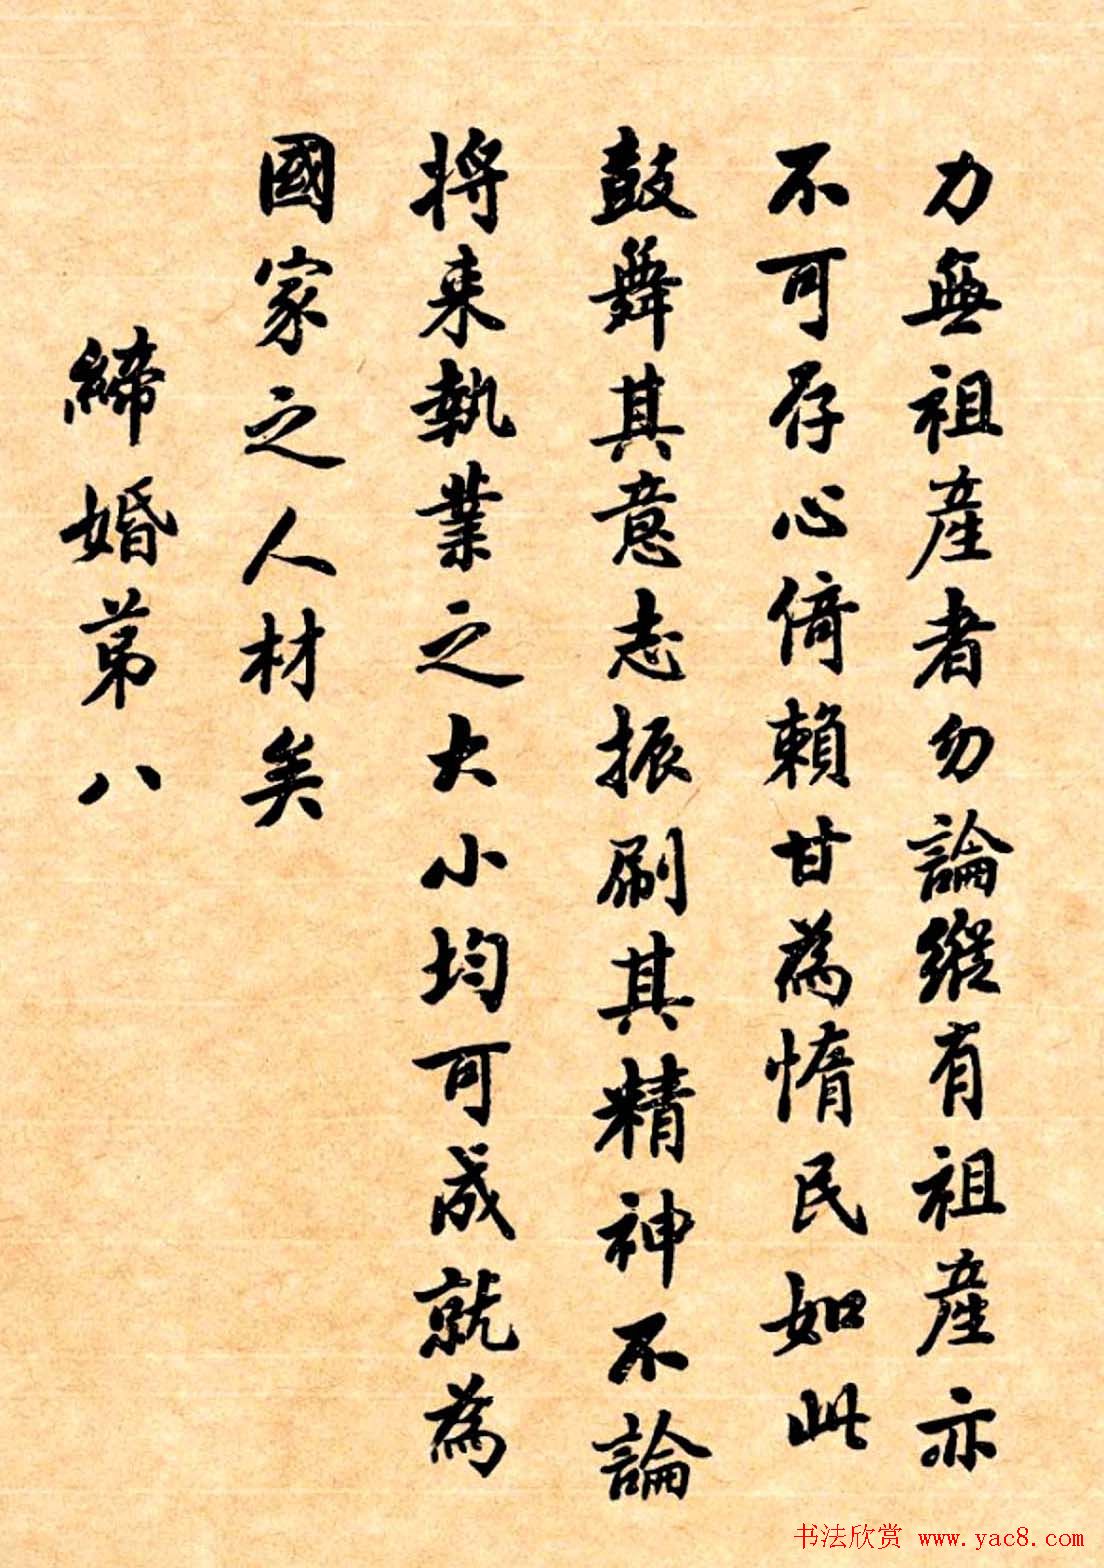 力無祖產者勿論縱有祖產亦
不可存心倚賴甘為惰民如此
鼓舞其意志振刷其精神不論
將来執業之大小均可成就為
國家之人材矣
締婚苐八
书法欣赏 www.yac8.com